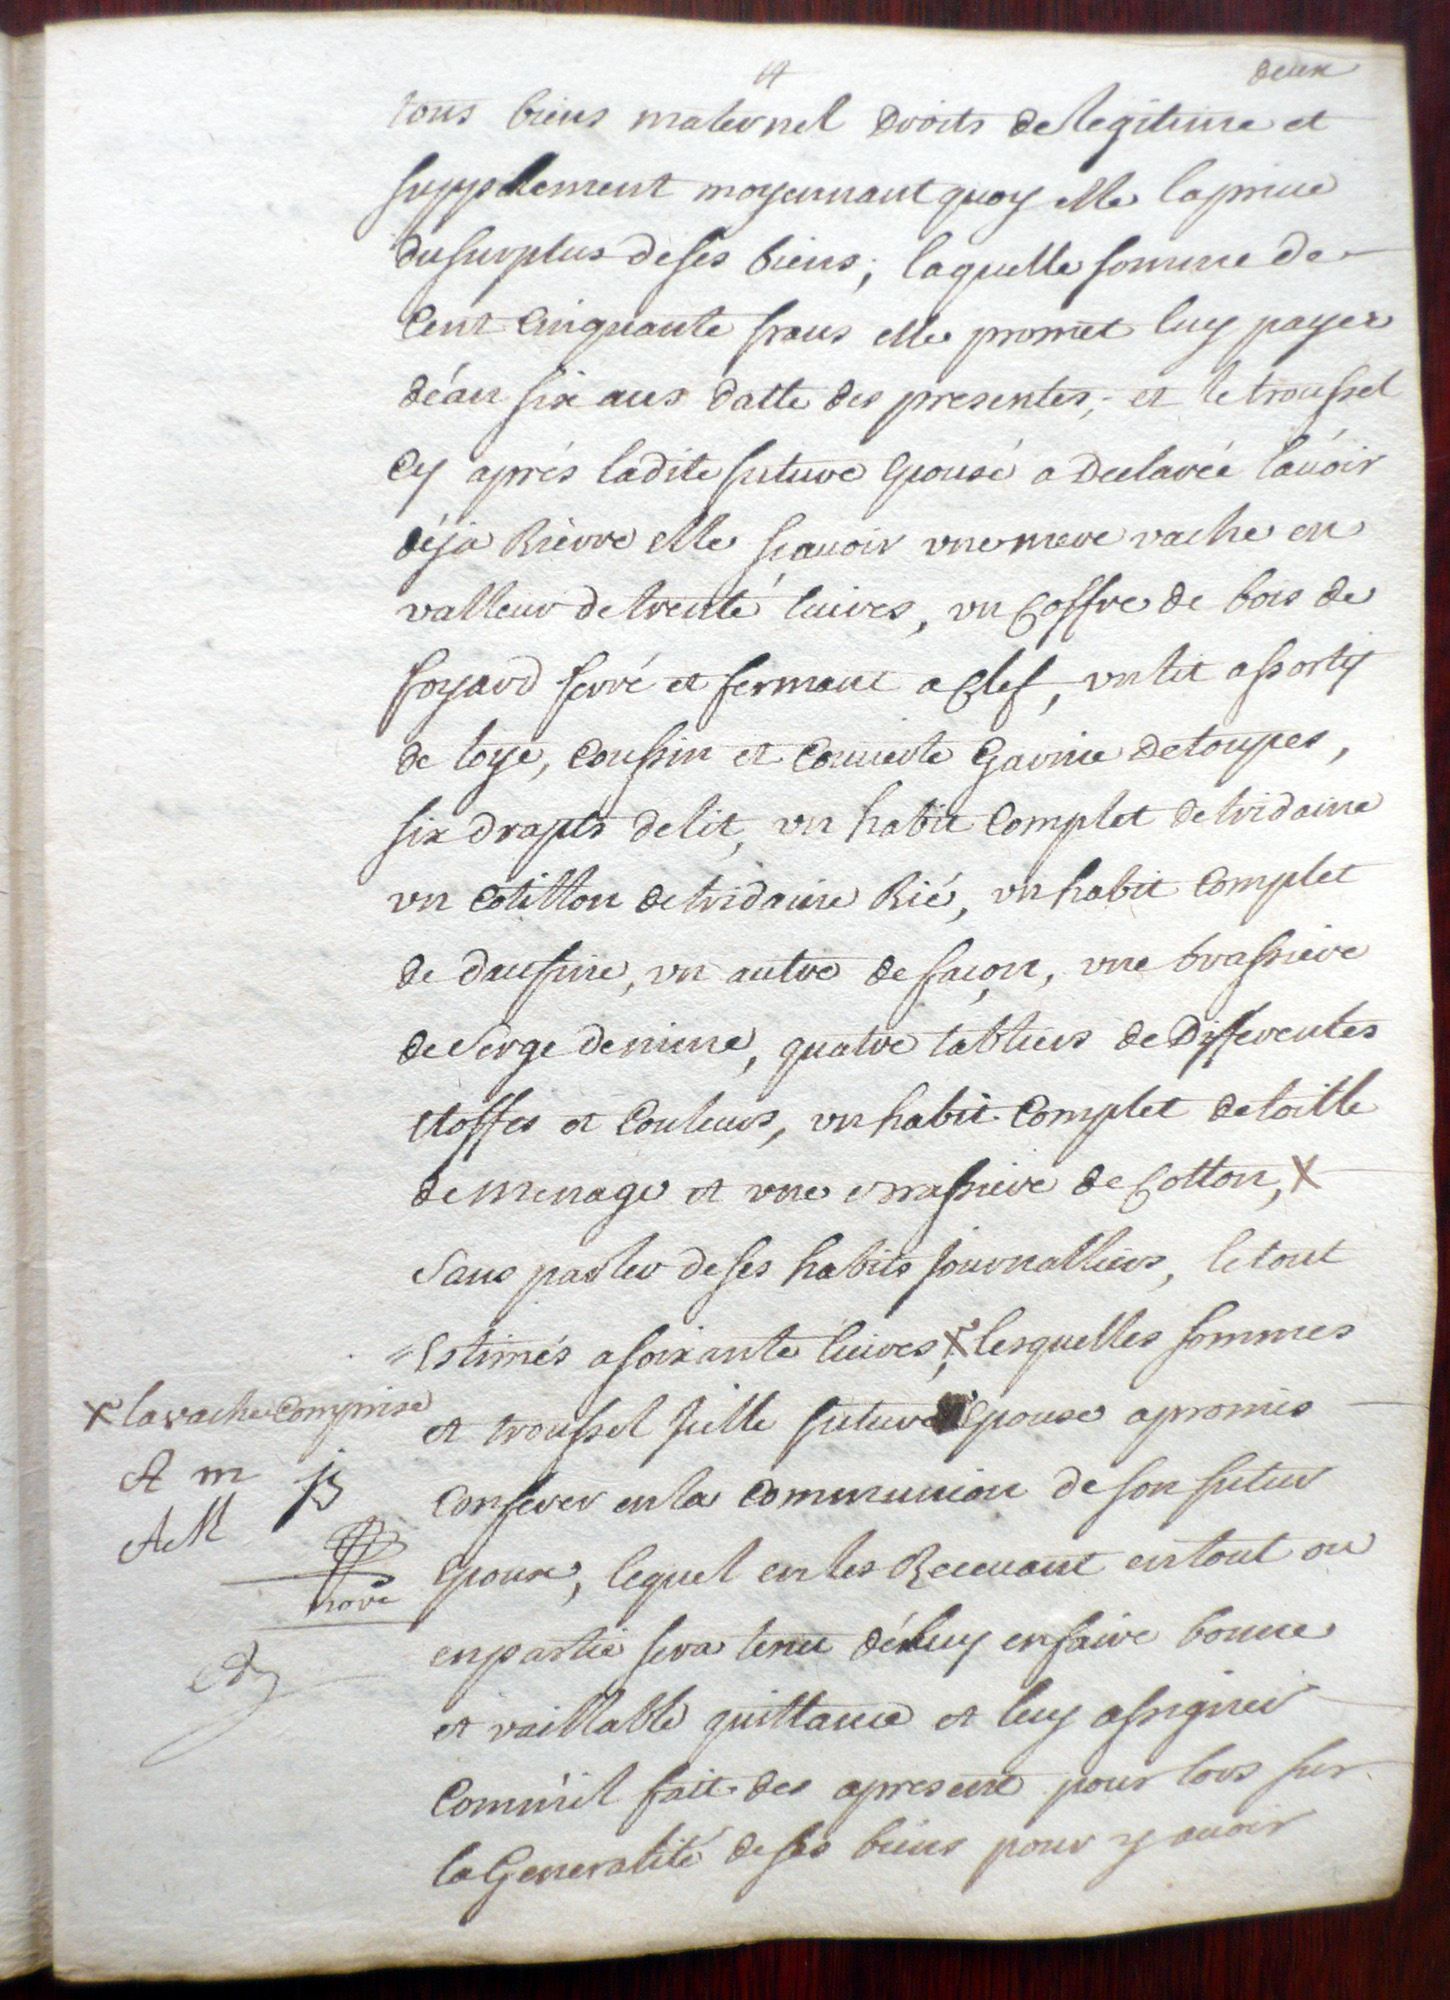 deux
tous biens maternel droits de legitime et
supplement moyennant quoy elle la prive
du surplus de ses biens; laquelle somme de
cent cinquante frans elle promet luy payer
déan six ans datte des presentes, et le troussel
cy aprés ladite future epouse a declarée l'auóir
déja Rierre elle scauoir vne mere vache en
valleur de trente liures, vn coffre de bois de
foyard ferré et fermant a clef, vn lit assorty
de loye, coussin et couuerte garnie detoupes,
six drapts de lit, vn habit complet de tridaine
vn cotillon de tridaine Rié, vn habit complet
de daufine, vn autre de facon, vne brassiere
de Serge de nime, quatre tabliers de differentes
etoffes et couleurs, vn habit complet de toille
de menage et vne brassiere de cotton, X
sans parler de ses habits journalliers, le tout
estimés a soixante liures, X lesquelles sommes
X la vache comprise
et troussel jcelle future Epouse a promis
A m
JB
conferer en la communion de son futur
AM
epoux, lequel en les Receuant en tout ou
en partie sera tenu de luy en faire bonne
et vaillable quittance et luy assigner
comm'il fait des apresent pour lors sur
la Generalité de ses biens pour y auoir